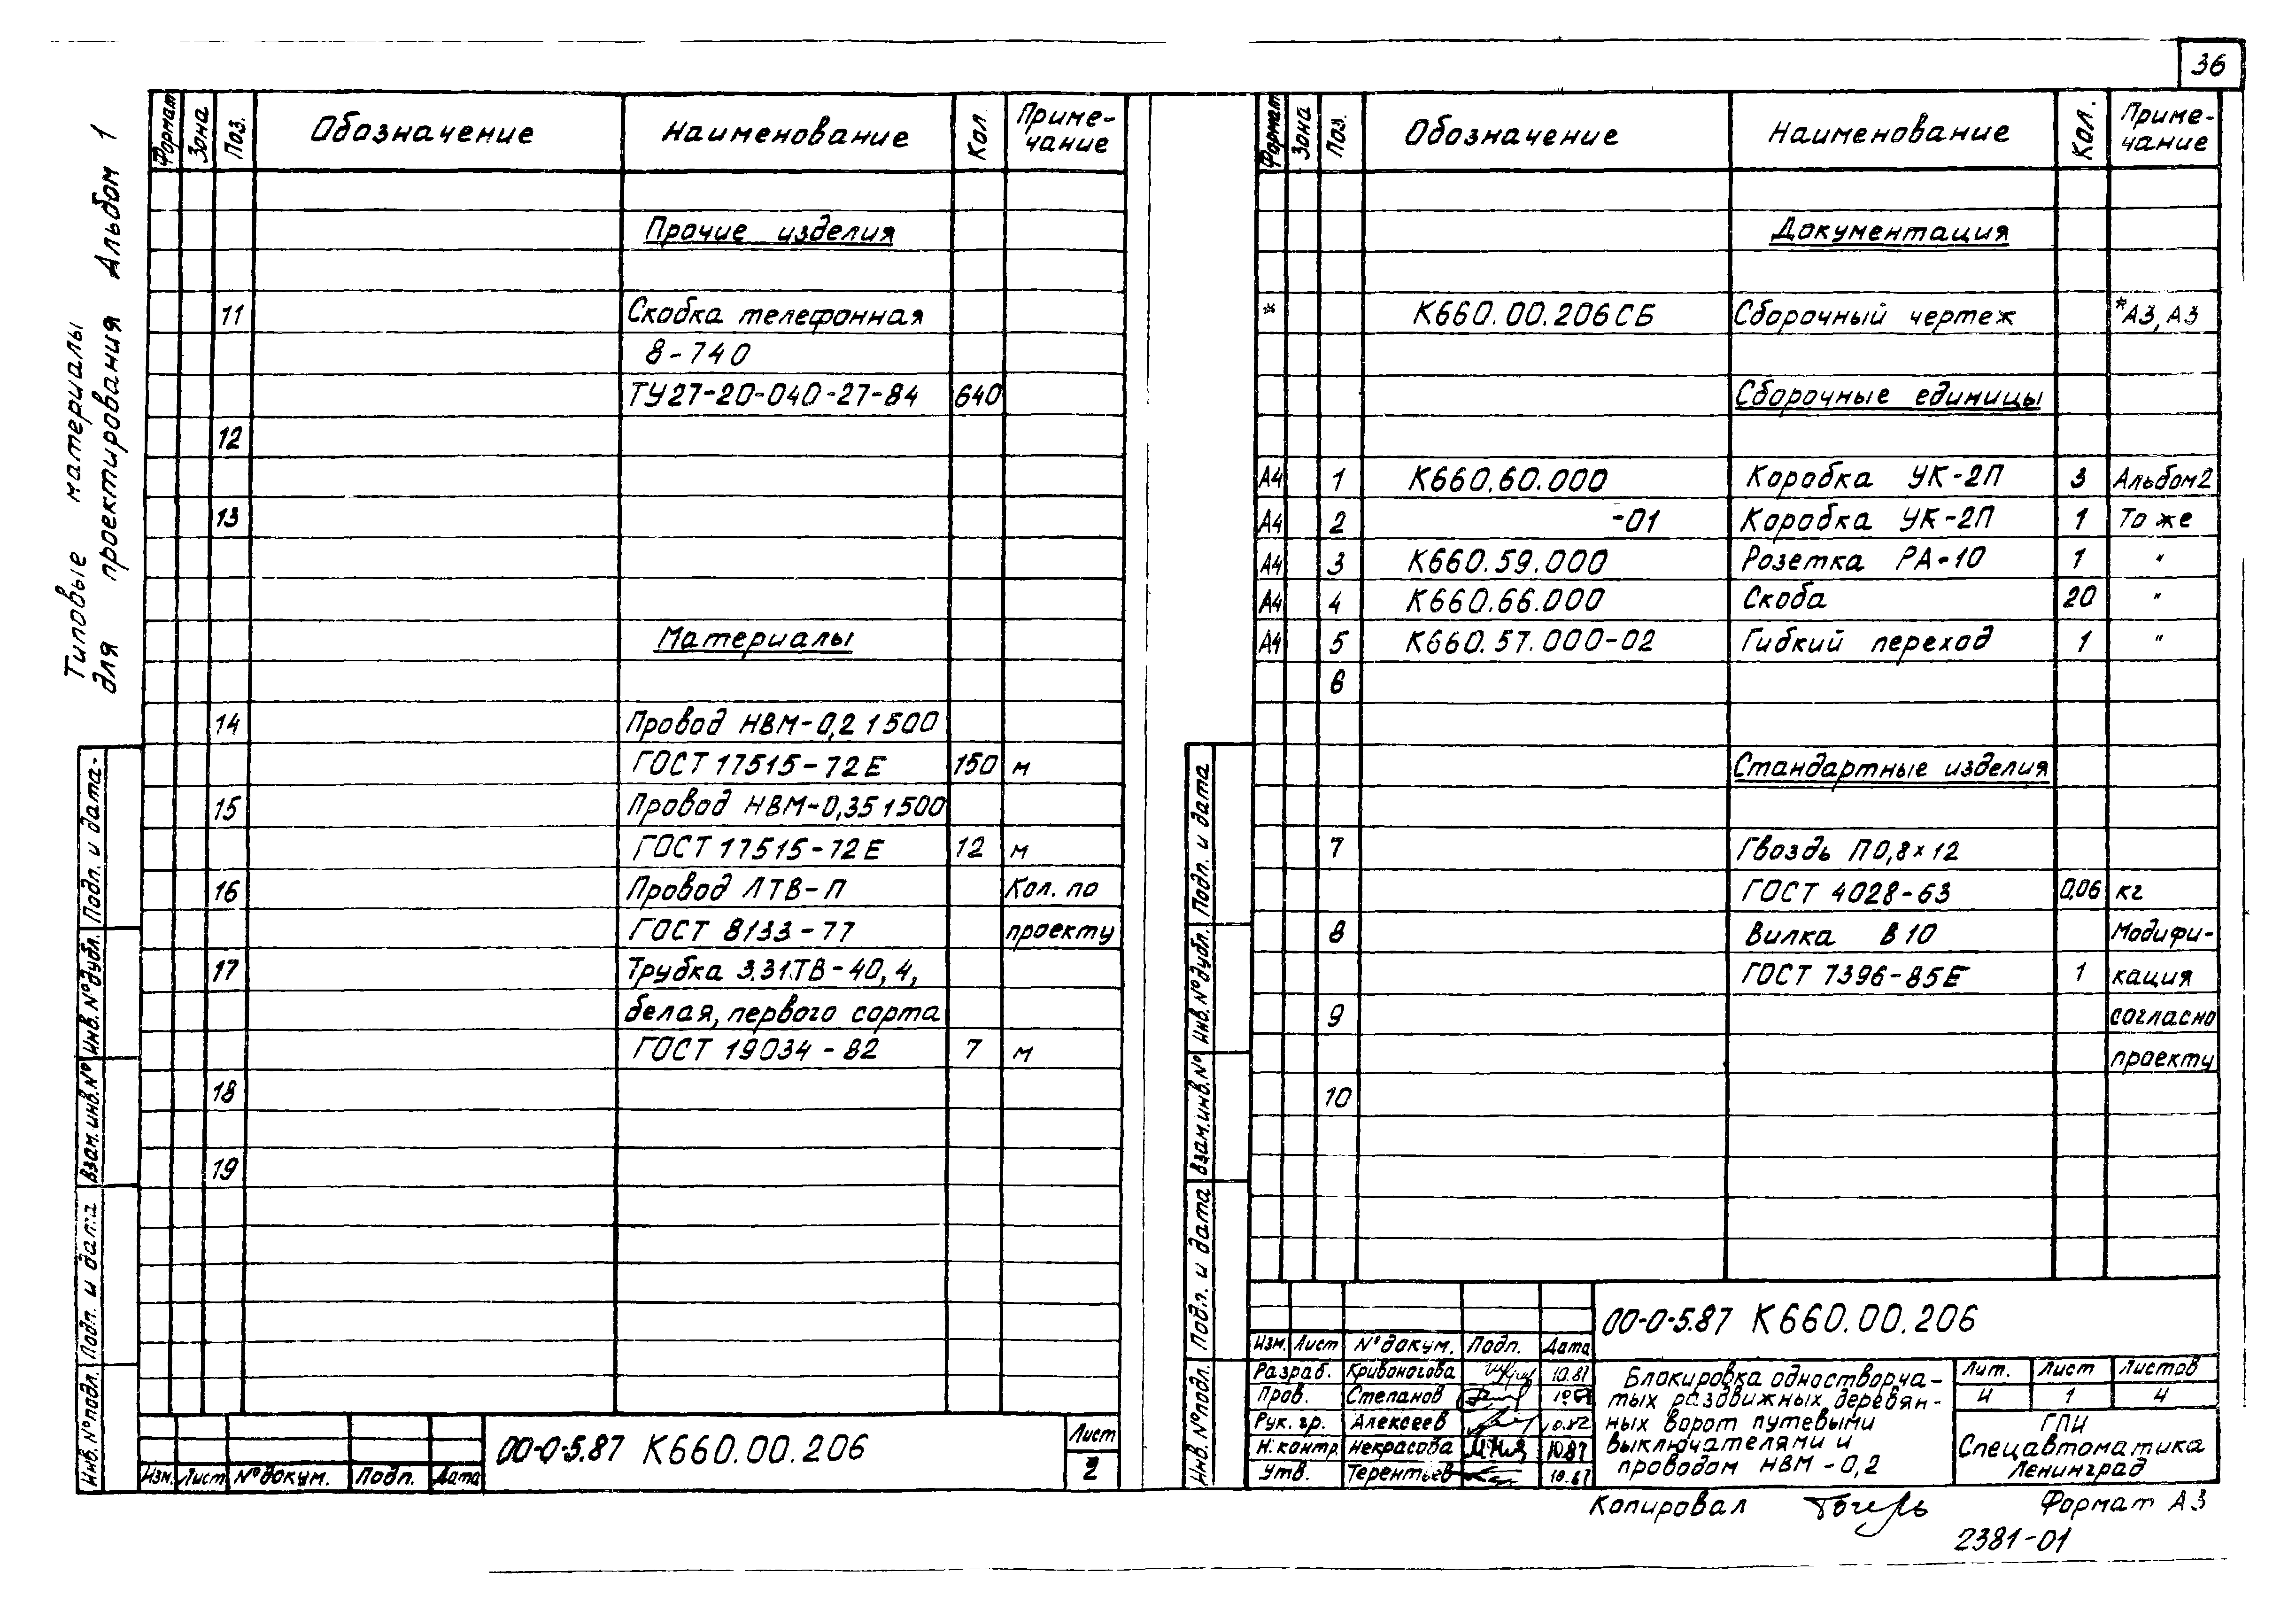 36
Типовые материалы
для проектирования Альбом 1
Формат Зона Поз. Обозначение Наименование Кол. Приме-
чание
Прочие изделия
11 Скобка телефонная
8-740
ТУ27-20-040-27-84 640
12
13
Материалы
14 Провод НВМ-0,2 1 500
ГОСТ 17515-72Е 150 м
15 Провод НВМ-0,35 1 500
ГОСТ 17515-72Е 12 м
16 Провод ЛТВ-П Кол. по
ГОСТ 8133-77 проекту
17 Трубка 3.31.ТВ-40, 4,
белая, первого сорта
ГОСТ 19034-82 7 м
18
19
Инв. № подл. Подп. и дата Взам. инв. № Инв. № дубл. Подп. и дата
Изм. Лист № докум. Подп. Дата
00-0-5.87 К660.00.206
Лист
2
Формат Зона Поз. Обозначение Наименование Кол. Приме-
чание
Документация
* К660.00.206СБ Сборочный чертеж *А3, А3
Сборочные единицы
А4 1 К660.60.000 Коробка УК-2П 3 Альбом 2
А4 2 -01 Коробка УК-2П 1 То же
А4 3 К660.59.000 Розетка РА-10 1 "
А4 4 К660.66.000 Скоба 20 "
А4 5 К660.57.000-02 Гибкий переход 1 "
6
Стандартные изделия
7 Гвоздь П 0,8×12
ГОСТ 4028-63 0,06 кг
8 Вилка В10 Модифи-
ГОСТ 7396-85Е 1 кация
9 согласно
проекту
10
Инв. № подл. Подп. и дата Взам. инв. № Инв. № дубл. Подп. и дата
00-0-5.87 К660.00.206
Изм. Лист № докум. Подп. Дата
Разраб. Кривоногова
Пров. Степанов
Рук. гр. Алексеев
Н. контр. Некрасова 10.87
Утв. Терентьев
Блокировка одностворча-
тых раздвижных деревян-
ных ворот путевыми
выключателями и
проводом НВМ-0,2
Лит. Лист Листов
И 1 4
ГПИ
Спецавтоматика
Ленинград
Копировал Формат А3
2381-01